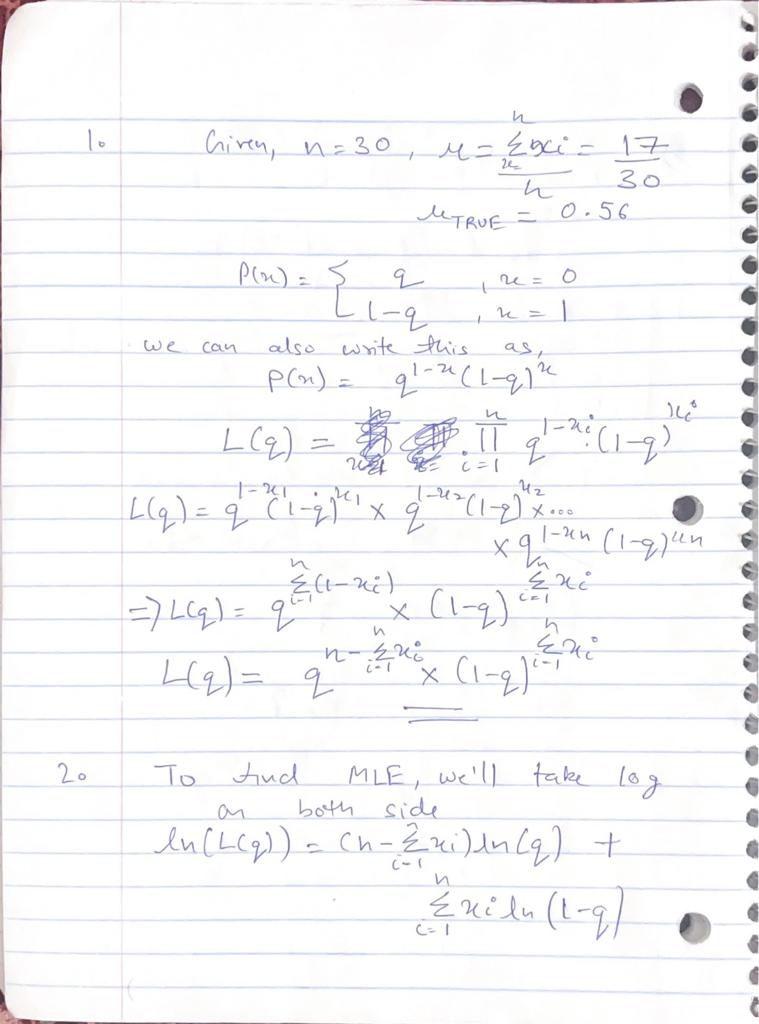 1. Given, n = 30, μ = Σxi / n = 17/30
μTRUE = 0.56
P(x) = { q , x = 0
1-q , x = 1
we can also write this as,
P(x) = q^(1-x) (1-q)^x
L(q) = ∏_{i=1}^{n} q^(1-xi) . (1-q)^(xi)
L(q) = q^(1-x1) (1-q)^(x1) × q^(1-x2) (1-q)^(x2) × ...
× q^(1-xn) (1-q)^(xn)
=> L(q) = q^(Σ_{i=1}^{n} (1-xi)) × (1-q)^(Σ_{i=1}^{n} xi)
L(q) = q^(n - Σ_{i=1}^{n} xi) × (1-q)^(Σ_{i=1}^{n} xi)
2. To find MLE, we'll take log
on both side
ln(L(q)) = (n - Σ_{i=1}^{n} xi) ln(q) +
Σ_{i=1}^{n} xi ln (1-q)